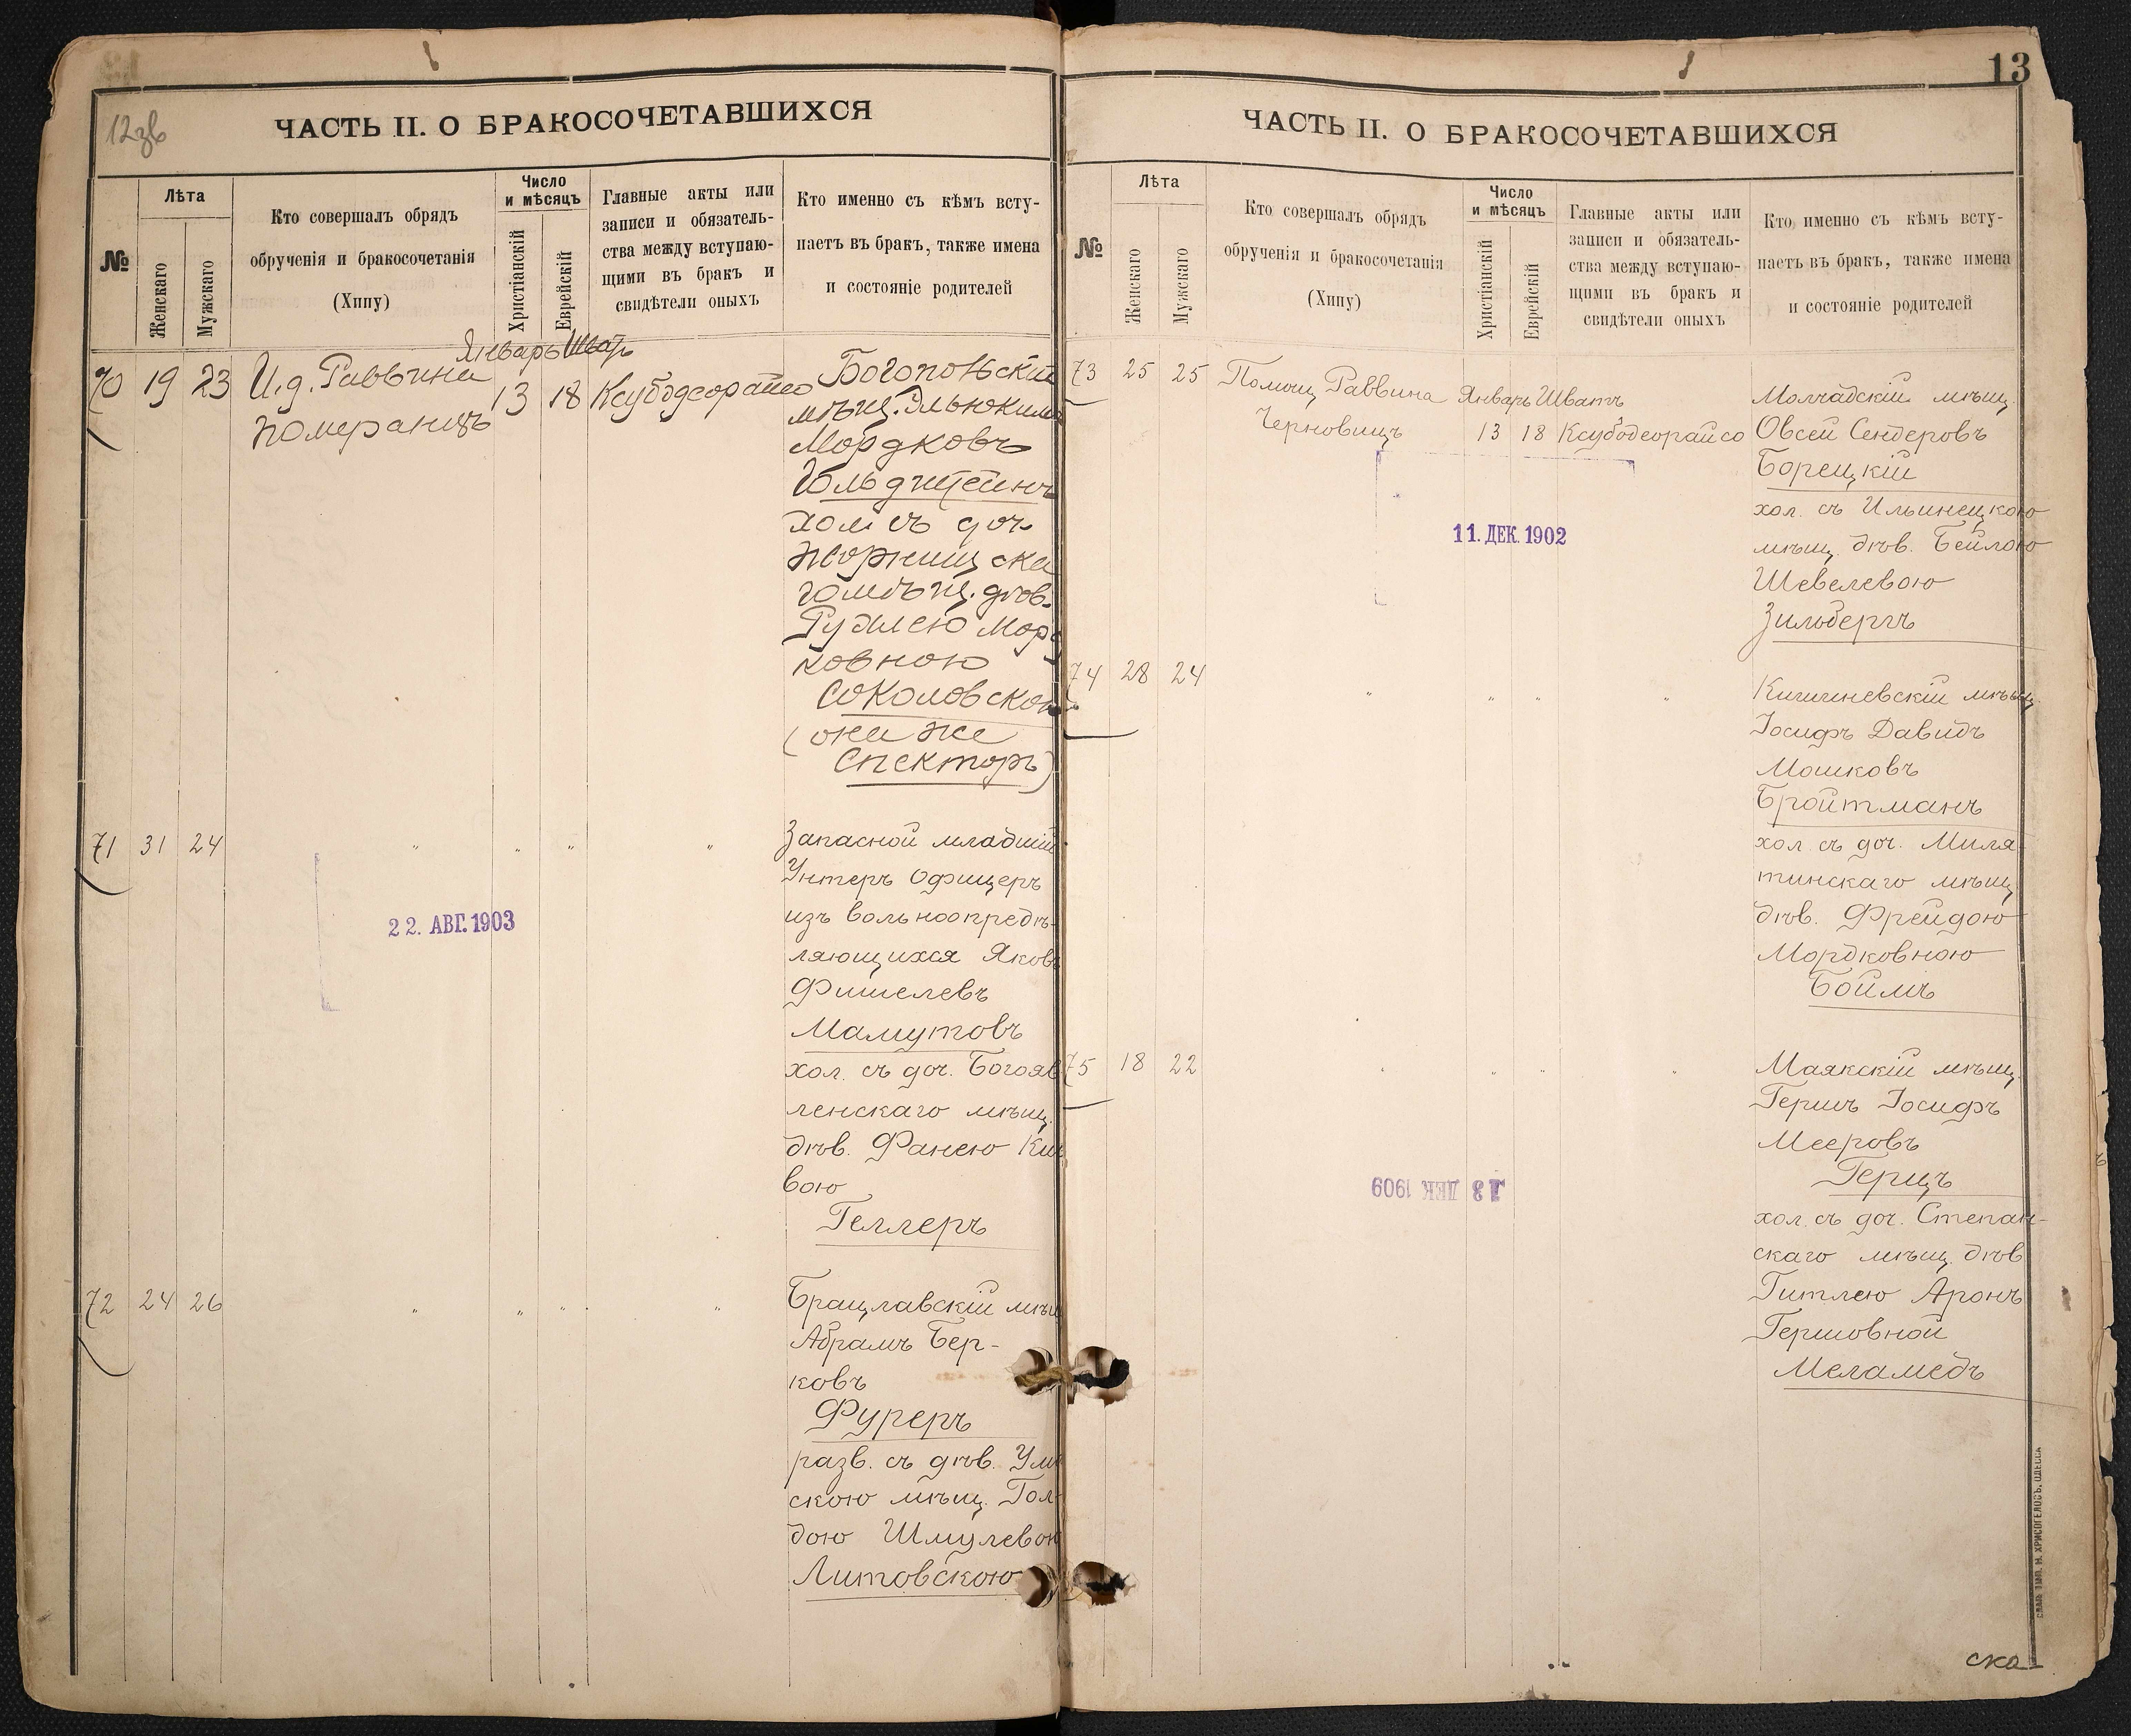 12зв
ЧАСТЬ II. О БРАКОСОЧЕТАВШИХСЯ
№
Лѣта
Женскаго
Мужскаго
Кто совершалъ обрядъ
обрученія и бракосочетанія
(Хипу)
Число
и мѣсяцъ
Христіанскій
Еврейскій
Главные акты или
записи и обязатель-
ства между вступаю-
щими въ бракъ и
свидѣтели оныхъ
Кто именно съ кѣмъ всту-
паетъ въ бракъ, также имена
и состояніе родителей
Январь Шват
70 19 23 И.д. Раввина 13 18 Ксубодеорайсо Богопольскій
Померанцъ мѣщ. Эльюкимъ
Мордковъ
Гольдштейнъ
хол съ доч
Жорнищска
го мѣщ. дѣв.
Рухлею Морд
ковною
Соколовскою
(она же
Спекторъ)
71 31 24 " " " " Запасной младшій
Унтеръ Офицеръ
изъ вольноопредѣ-
ляющихся Яковъ
Фишелевъ
Мамутовъ
хол. съ доч. Богояв
ленскаго мѣщ.
дѣв. Фанею Ки
вою
Геллеръ
22. АВГ. 1903
72 24 26 " " " " Брацлавскій мѣщ
Абрамъ Бер-
ковъ
Фуреръ
разв. съ дѣв. Ум
скою мѣщ. Гол-
дою Шмулевою
Литовскою
13
ЧАСТЬ II. О БРАКОСОЧЕТАВШИХСЯ
№
Лѣта
Женскаго
Мужскаго
Кто совершалъ обрядъ
обрученія и бракосочетанія
(Хипу)
Число
и мѣсяцъ
Христіанскій
Еврейскій
Главные акты или
записи и обязатель-
ства между вступаю-
щими въ бракъ и
свидѣтели оныхъ
Кто именно съ кѣмъ всту-
паетъ въ бракъ, также имена
и состояніе родителей
73 25 25 Помощ Раввина Январь Шватъ Молчадскій мѣщ.
Черновицъ 13 18 Ксубодеорайсо Овсей Сендеровъ
Борецкій
хол. съ Ильинецкою
мѣщ. дѣв. Бейлою
Шевелевою
Зильбергъ
11. ДЕК. 1902
74 28 24 " " " " Кишиневскій мѣщ
Іосифъ Давидъ
Мошковъ
Бройтманъ
хол. съ доч. Миля
тинскаго мѣщ
дѣв. Фрейдою
Мордковною
Боймъ
75 18 22 " " " " Маякскій мѣщ.
Гершъ Іосифъ
Мееровъ
Герцъ
хол. съ доч. Степан-
скаго мѣщ. дѣв
Гитлею Аронъ
Гершовной
Меламедъ
13 ДЕК 1909
ска-
СЛАВ. ТИП. Н. ХРИСОГЕЛОСЪ. ОДЕССА